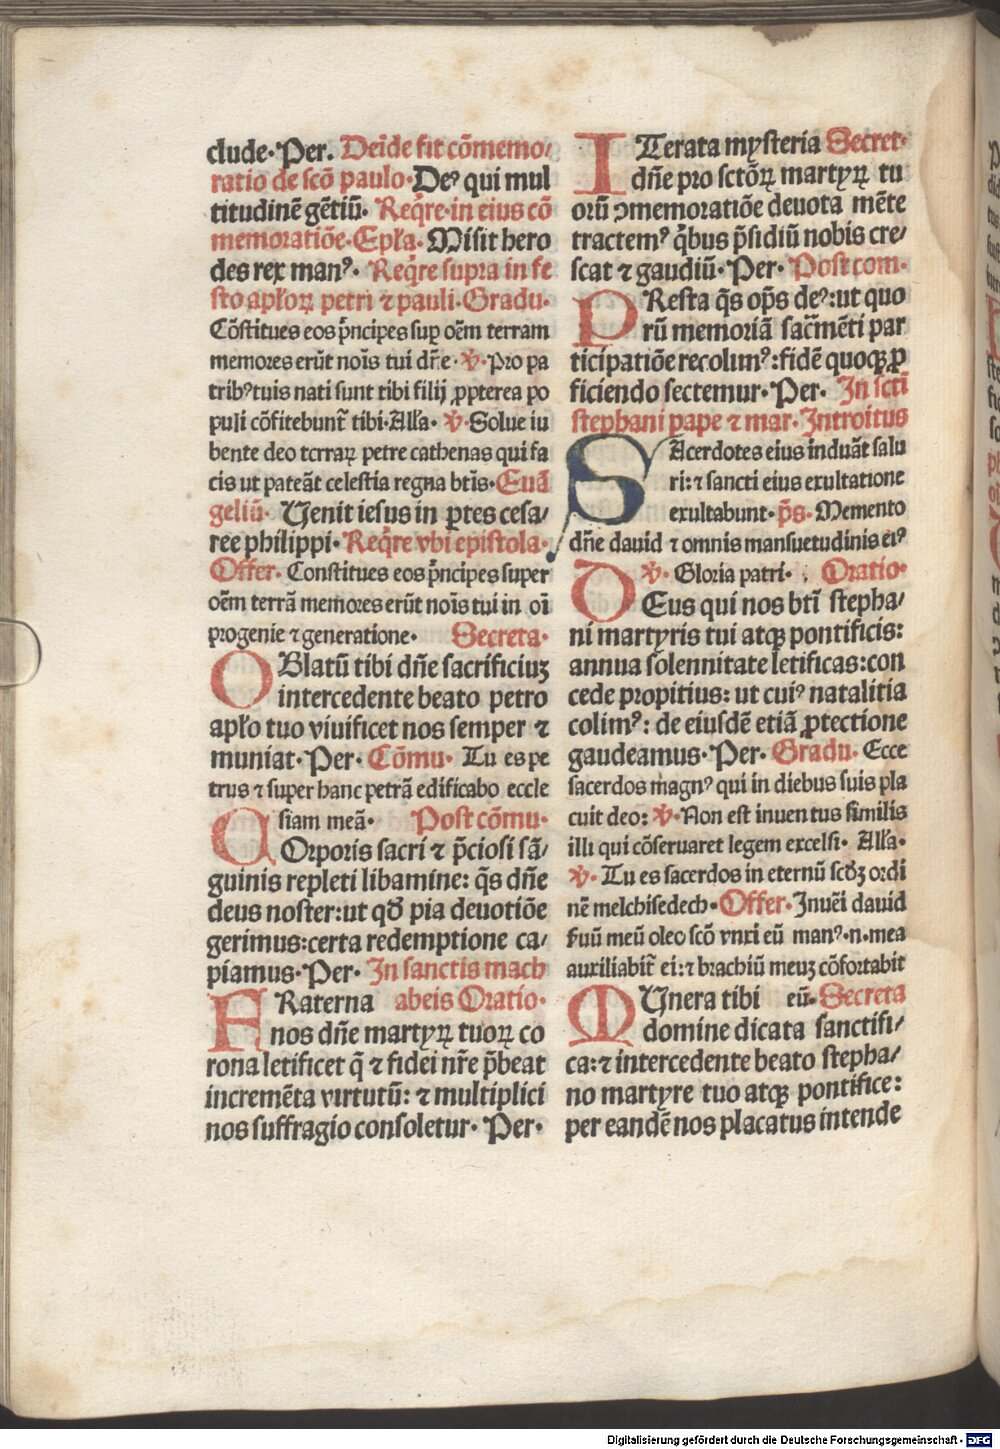 clude· Per. Deīde fit cōmemo/
ratio de scō paulo· Deꝰ qui mul
titudinē gētiū· Reqͥre·in eius cō
memoratiōe·Epl̄a· Misit hero
des rex manꝰ· Reqͥre supra in fe
sto apl̄oꝝ petri ⁊ pauli·Gradu·
Cōstitues eos p̄ncipes suꝑ oēm terram
memores erūt noīs tui dn̄e· ℣· Pro pa
tribꝰ tuis nati sunt tibi filij ꝓpterea po
puli cōfitebunt᷑ tibi·All̄a· ℣· Solue iu
bente deo terraꝝ petre cathenas qui fa
cis ut pateāt celestia regna btīs· Euā
geliū· Uenit iesus in ꝑtes cesa/
ree philippi· Reqͥre vbi epistola·
Offer· Constitues eos p̄ncipes super
oēm terrā memores erūt noīs tui in oī
progenie ⁊ generatione· Secreta·
OBlatū tibi dn̄e sacrificiuꝫ
intercedente beato petro
apl̄o tuo viuificet nos semper ⁊
muniat· Per· Cōmu· Tu es pe
trus ⁊ super hanc petrā edificabo eccle
siam meā· Post cōmu·
COrporis sacri ⁊ p̄ciosi sā/
guinis repleti libamine: q̄s dn̄e
deus noster: ut qd̄ pia deuotiōe
gerimus: certa redemptione ca/
piamus· Per· In sanctis mach
FRaterna abeis Oratio·
nos dn̄e martyꝝ tuoꝝ co
rona letificet q̄ ⁊ fidei nr̄e p̄beat
incremēta virtutū: ⁊ multiplici
nos suffragio consoletur· Per·
ITerata mysteria Secret·
dn̄e pro sctōꝝ martyꝝ tu
orū ↄmemoratiōe deuota mēte
tractemꝰ qͥbus p̄sidiū nobis cre/
scat ⁊ gaudiū· Per· Post com·
PResta q̄s op̄s deꝰ: ut quo
rū memoriā sacr̄mēti par
ticipatiōe recolimꝰ: fidē quoqꝫ ꝓ
ficiendo sectemur· Per· In sctī
stephani pape ⁊ mar· Introitus
SAcerdotes eius induāt salu
ri: ⁊ sancti eius exultatione
exultabunt· p̄s· Memento
dn̄e dauid ⁊ omnis mansuetudinis eiꝰ
℣· Gloria patri· Oratio·
DEus qui nos btī stepha/
ni martyris tui atqꝫ pontificis:
annua solennitate letificas: con
cede propitius: ut cuiꝰ natalitia
colimꝰ: de eiusdē etiā ꝓtectione
gaudeamus· Per· Gradu· Ecce
sacerdos magnꝰ qui in diebus suis pla
cuit deo: ℣· Non est inuentus similis
illi qui cōseruaret legem excelsi· All̄a·
℣· Tu es sacerdos in eternū scd̄ꝫ ordi
nē melchisedech· Offer· Inuēi dauid
seruū meū oleo scō vnxi eū manꝰ·n·mea
auxiliabit᷑ ei: ⁊ brachiū meuꝫ cōfortabit
MUnera tibi eū· Secreta
domine dicata sanctifi/
ca: ⁊ intercedente beato stepha/
no martyre tuo atqꝫ pontifice:
per eandē nos placatus intende
Digitalisierung gefördert durch die Deutsche Forschungsgemeinschaft - DFG